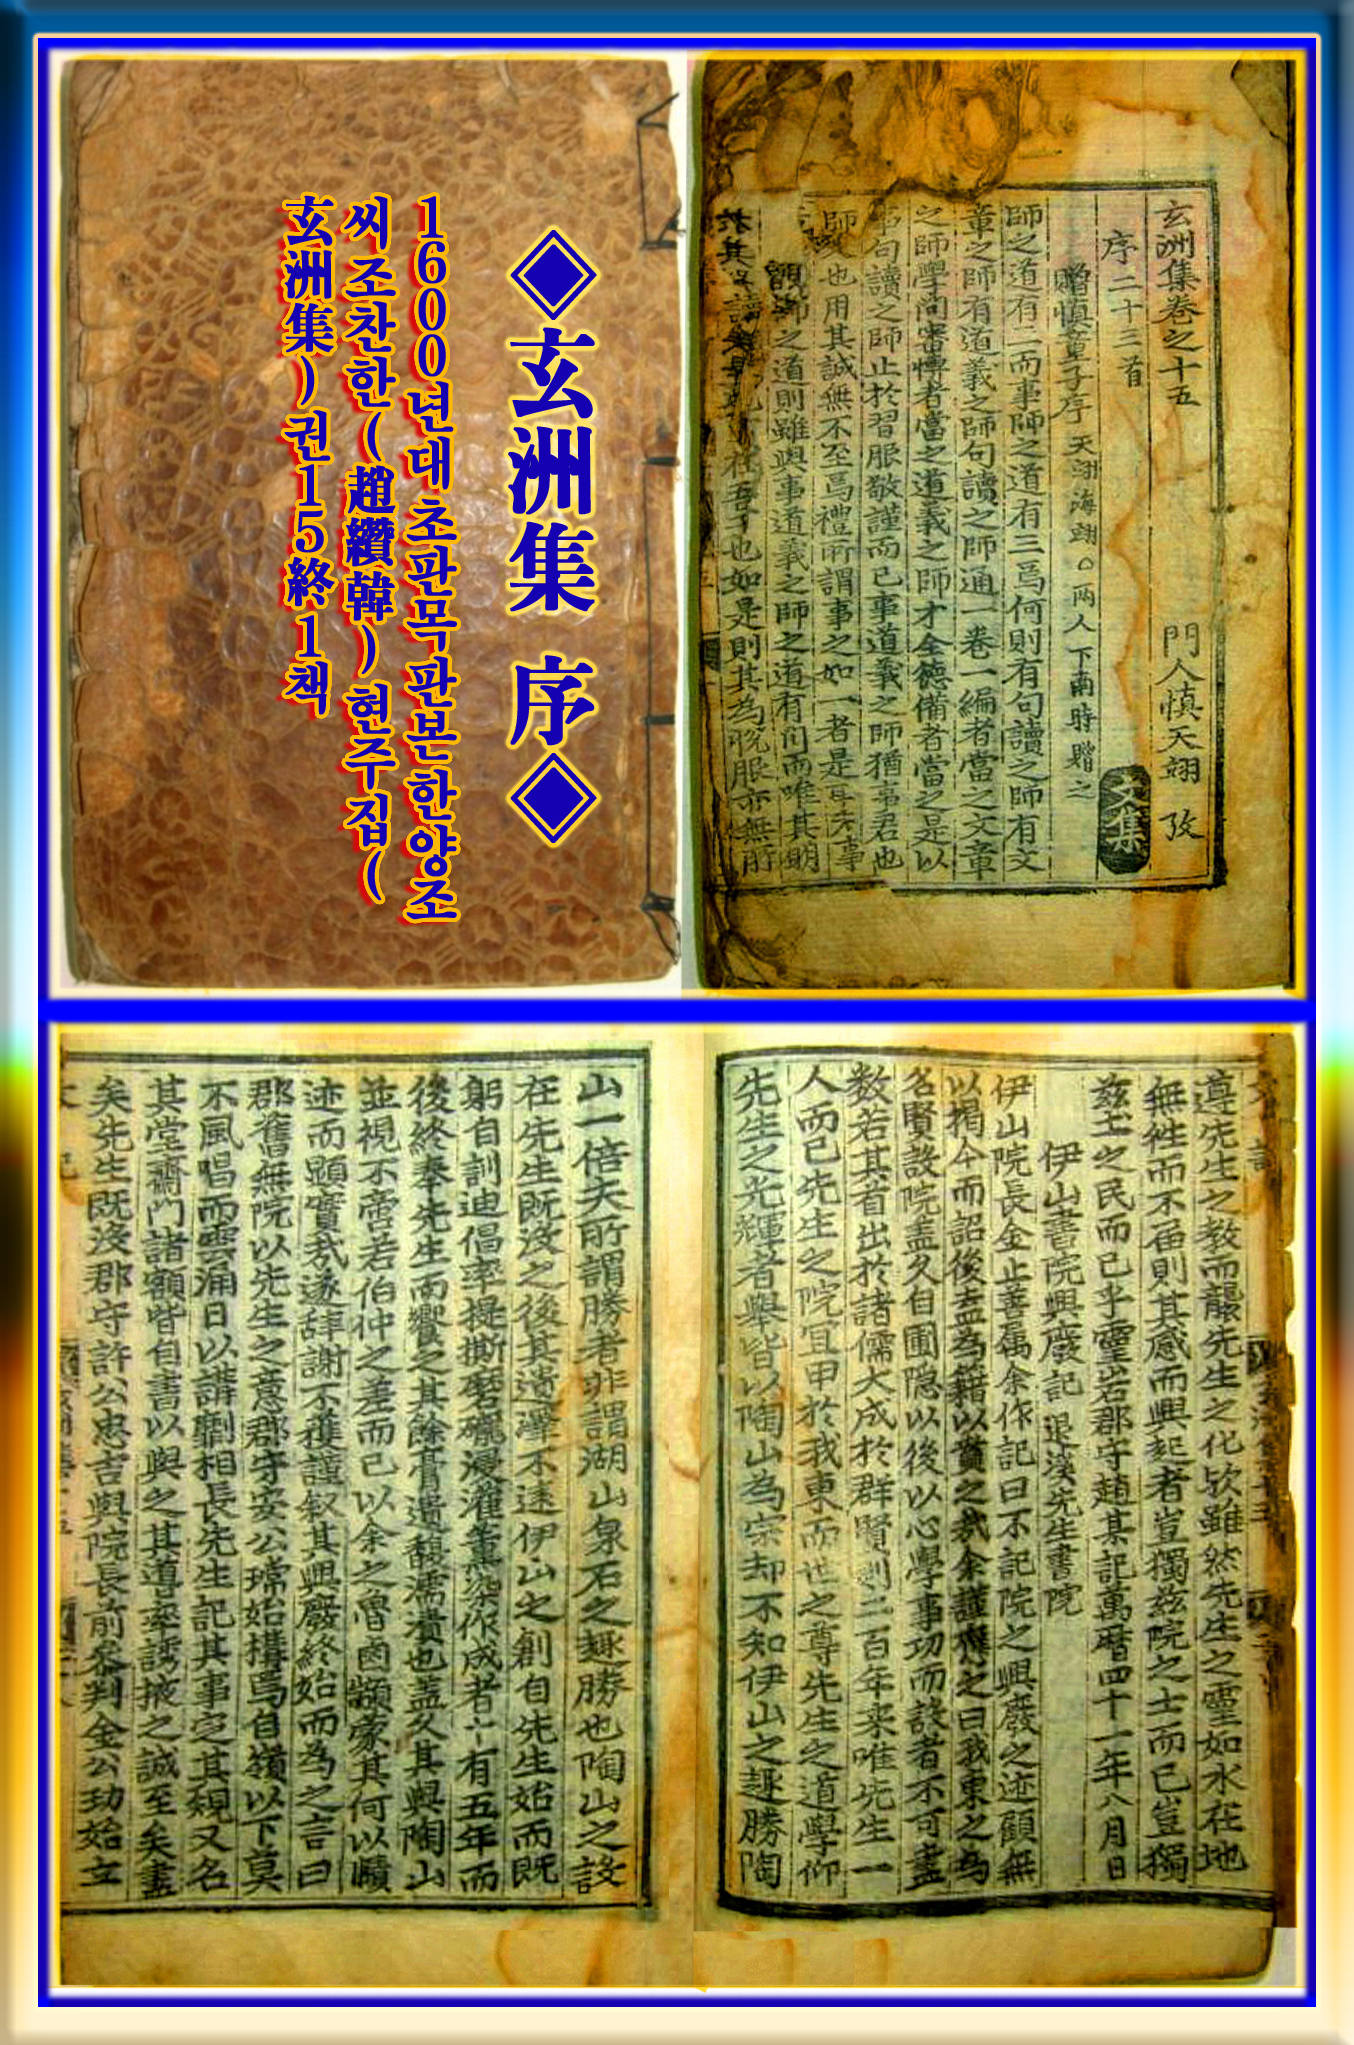 ◈玄洲集 序◈
1600년대초판목판본한양조
씨조찬한(趙纘韓)현주집(
玄洲集)권15終1책
玄洲集卷之十五 門人愼天翊 攷
序二十三首
贈愼童子序 天翊海翊○兩人下南時贈之
師之道有二而事師之道有三爲何則有句讀之師有文
章之師有道義之師句讀之師通一卷一編者當之文章
之師學問審愽者當之道義之師才全德備者當之是以
句讀之師止於習服敬謹而已事道義之師猶事君也
師 也用其誠無不至焉禮所謂事之如一者是
師之道則雖與事道義之師之道有間而唯其明
吾子也如是則其為悅服亦無所
遵先生之敎而襲先生之化欤雖然先生之靈如水在地
無徃而不在則其感而興起者豈獨茲院之士而已豈獨
茲土之民而已乎靈岩郡守趙某記萬曆四十一年八月日
伊山書院興廢記 退溪先生書院
伊山院長金止善属余作記曰不記院之興廢之迹顧無
以揭今而詔後盍為籍以賁之哉余謹應之曰我東之為
名賢設院盖久自圃隐以後以心學事功而設者不可盡
数若其首出於諸儒大成於群賢則二百年来唯先生一
人而已先生之院宜甲於我東而世之尊先生之道學仰
先生之光輝者舉皆以陶山為宗却不知伊山之趣勝陶
山一倍夫所謂勝者非謂湖山泉石之趣勝也陶山之設
在先生既没之後其遺澤不逺伊山之創自先生始而既
躬自訓迪倡率提撕磨礲浸灌薰染作成者十有五年而
後終奉先生而饗之其餘膏遺馥濡漬也盖久其與陶山
並視不啻若伯仲之差而已以余之魯鹵顓蒙其何以賾
迹而顯實哉遂辞謝不獲謹叙其興廢終始而為之言曰
郡舊無院以先生之意郡守安公瑺始搆焉自嶺以下莫
不風唱而雲涌日以講劘相長先生記其事定其規又名
其堂齋門諸額皆自書以與之其導率誘掖之誠至矣盡
矣先生既没郡守許公忠吉與院長前叅判金公玏始立